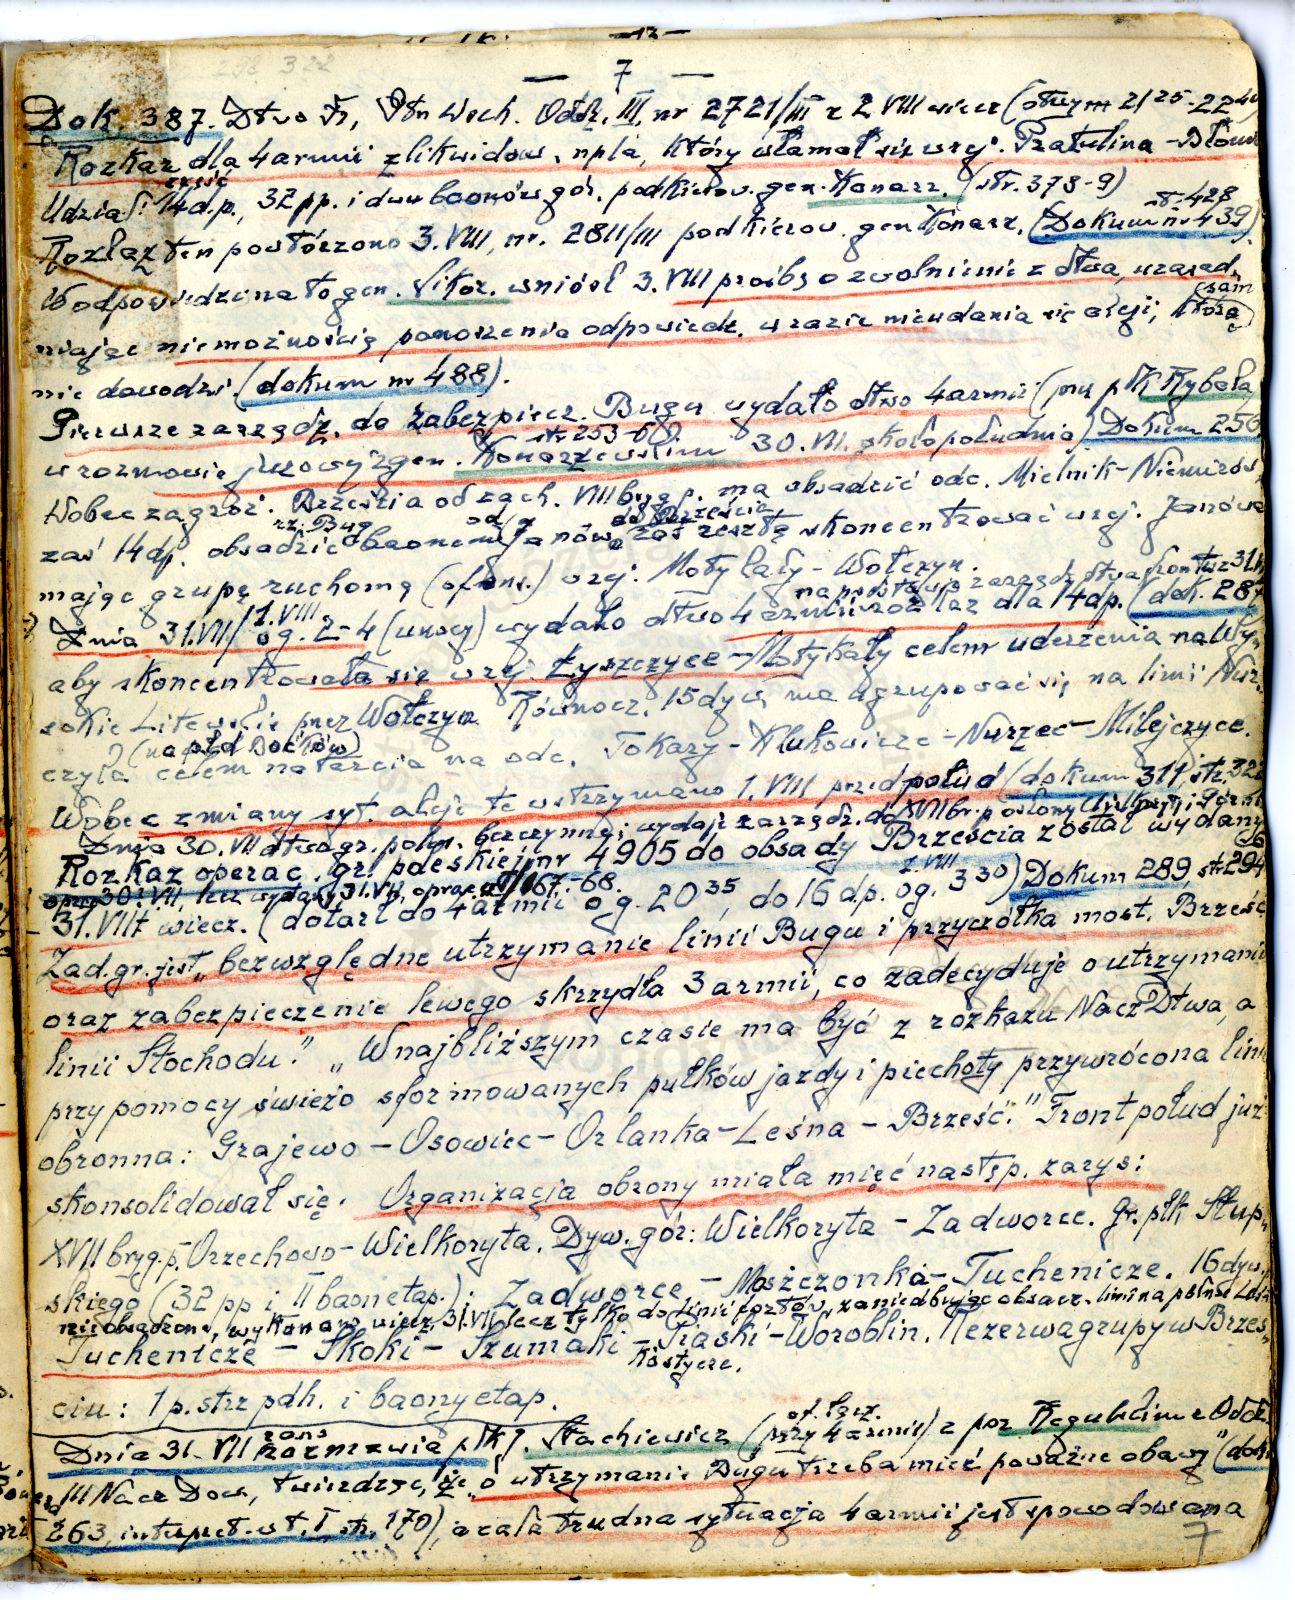 — 7 —
Dok. 387. Dtwo Fr. Płn Wsch. Oddz. III, nr 2721/III z 2 VIII wiecz (otrzym 21 25 - 22 40
Rozkaz dla 4 armii zlikwidow. npla, który włamał się w rej. Pratulina -
Udział: część 14 d.p., 32 pp. i dwu baonów gór. pod kierow. gen. Konarz. (str. 378-9)
Rozkaz ten powtórzono 3. VIII, nr. 2811/III pod kierow. gen Konarz. (Dokum nr 439) str. 428
W odpowiedzi na to gen. Sikor. wniósł 3. VIII prośbę o zwolnienie z dtwa, uzasad-
niając niemożnością ponoszenia odpowiedz. w razie nieudania się akcji, którą sam
nie dowodzi. (dokum nr 488).
Pierwsze zarządz. do zabezpiecz. Bugu wydało dtwo 4 armii (przez płk Rybaka)
w rozmowie juzowej z gen. Konarzewskim 30. VII. około południa) Dokum 256 str 253-60.
Wobec zagroż. Brześcia od zach. VIII bryg p. ma obsadzić odc. Mielnik - Niemirów
zaś 14 dp. obsadzić rz. Bug baonem od Janów. do Brześcia zaś resztą skoncentrować w rej. Janowa
mając grupę ruchomą (ofens.) w rej. Motykały - Wołczyn.
Dnia 31. VII/1. VIII o g. 2-4 (w nocy) wydało dtwo 4 armii na podstawie zarządz. dtwa frontu z 31. VII rozkaz dla 14 dp. (dok. 287
aby skoncentrowała się w rej. Łyszczyce - Motykały celem uderzenia na Wy-
sokie Litewskie przez Wołczyn. Równocz. 15 dyw. ma ugrupować się na linii Nur-
czyka (na płd Boćków) celem natarcia na odc. Tokary - Klukowicze - Nurzec - Milejczyce.
Wobec zmiany syt. akcję tę wstrzymano 1. VIII przed połud (dokum 311, str. 322
Dnia 30. VII dtwo gr. poles. bezczynnej wydaje zarządz. do XVII br. p osłony
Rozkaz operac. gr. poleskiej nr 4905 do obsady Brześcia został wydany
oprac 30. VII, lecz wydany 31. VII, oprac. 167.-68.
31. VII wiecz. (dotarł do 4 armii o g. 20 35, do 16 dp. o g. 3 30 1. VIII) Dokum 289, str 294
Zad. gr. jest „bezwzględne utrzymanie linii Bugu i przyczółka most. Brześć
oraz zabezpieczenie lewego skrzydła 3 armii, co zadecyduje o utrzymaniu
linii Stochodu." „W najbliższym czasie ma być z rozkazu Nacz Dtwa, a
przy pomocy świeżo sformowanych pułków jazdy i piechoty przywrócona linia
obronna: Grajewo - Osowiec - Orlanka - Leśna - Brześć." "Front połud już
skonsolidował się. Organizacja obrony miała mieć następ. zarys:
XVII bryg. p. Orzechowo - Wielkoryta. Dyw. gór: Wielkoryta - Zadworce. Gr. płk Słup-
skiego (32 pp i II baon etap.): Zadworce - Moszczonka - Tuchenicze. 16 dyw.
nieobsadzona, wykonano wiecz. 31. VII lecz tylko do linii fortów, zaniedbując obsadz. linii na półn.
Tuchenicze - Skoki - Szumaki - Piaski - Woroblin. Rezerwa grupy w Brześ-
Kostycze.
ciu: 1 p. strz pdh. i baony etap.
Dnia 31. VII rano rozmawia płk J. Stachiewicz (of. łącz. przy 4 armii) z por Regulskim z Oddz.
III Nacz Dow, twierdząc, że „o utrzymanie Bugu trzeba mieć poważne obawy" (dok
263, t. I, str. 170), a cała trudna sytuacja 4 armii jest spowodowana
7